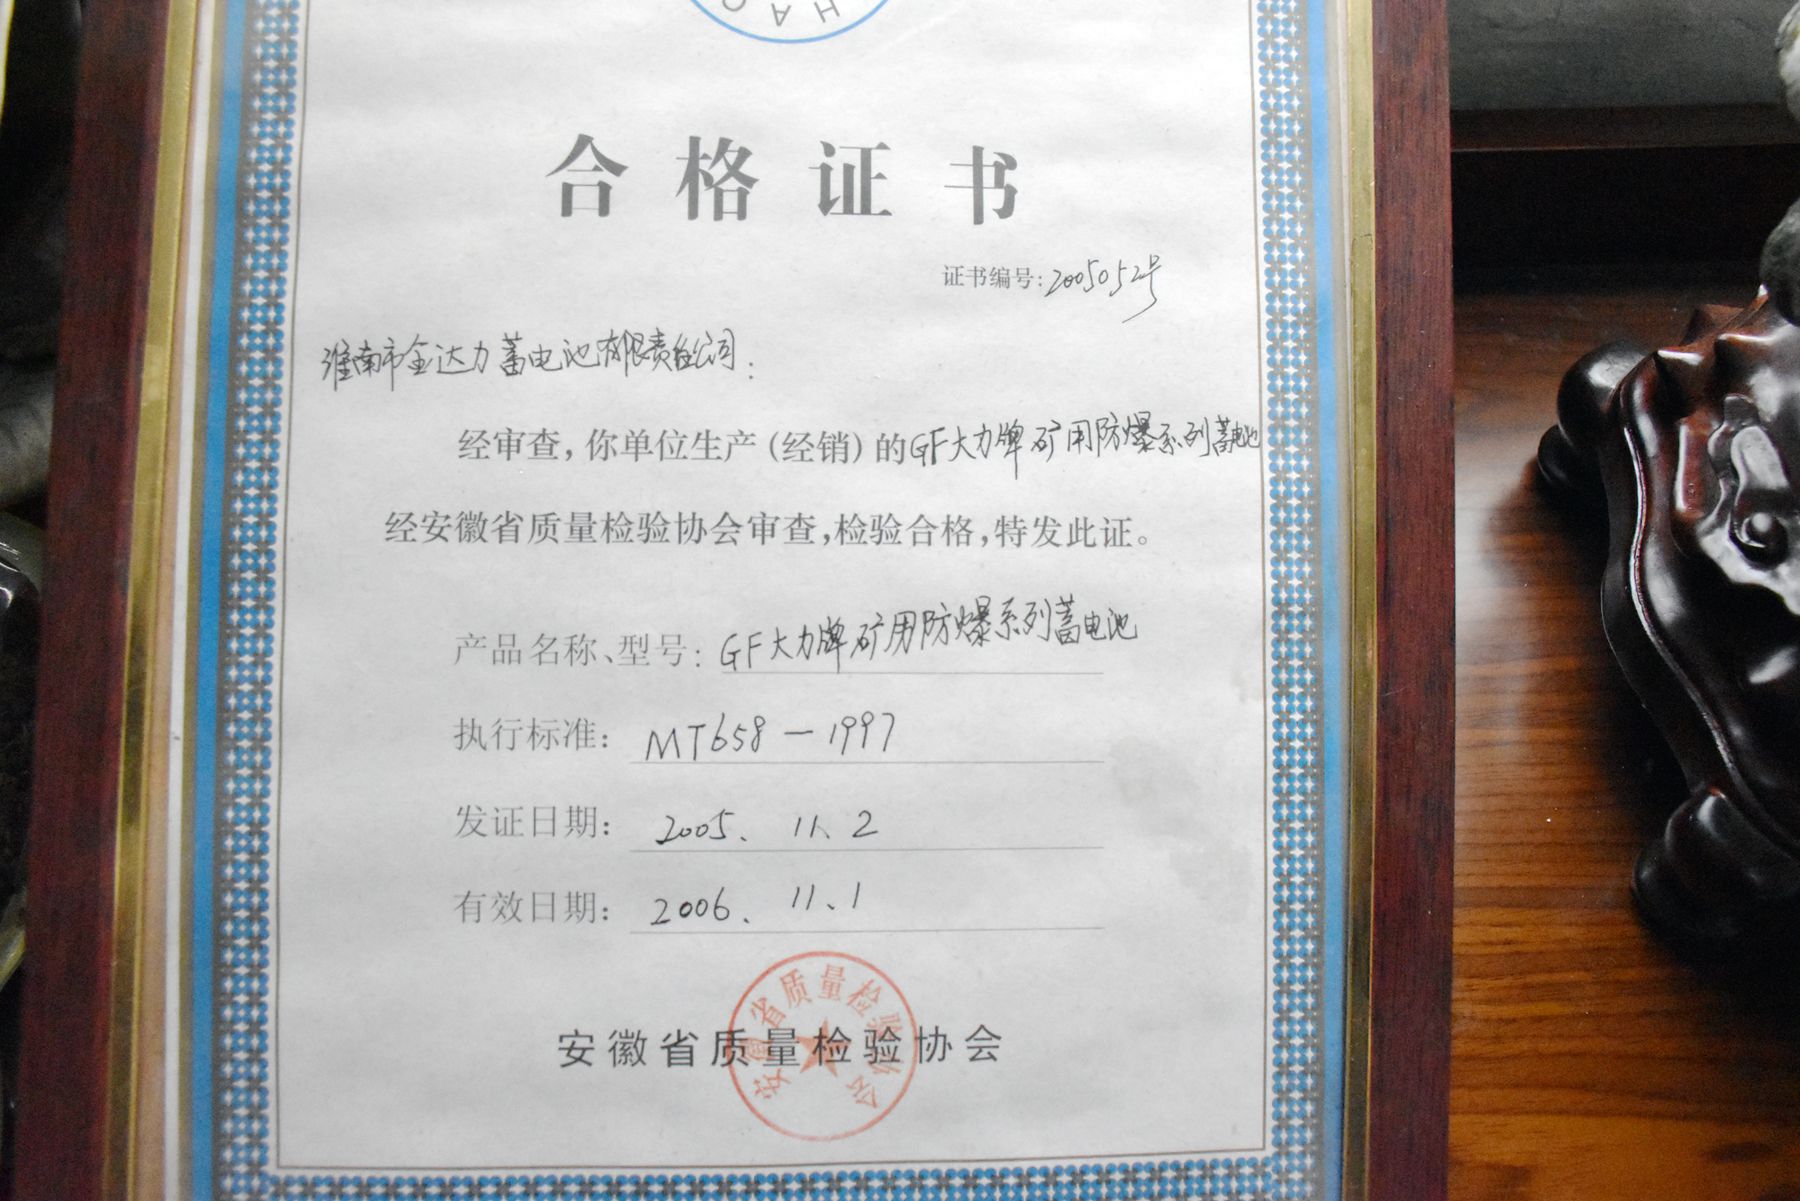 HAO
合格证书
证书编号:2005052号
淮南市金达力蓄电池有限责任公司:
经审查,你单位生产(经销)的GF大力牌矿用防爆系列蓄电池
经安徽省质量检验协会审查,检验合格,特发此证。
产品名称、型号:GF大力牌矿用防爆系列蓄电池
执行标准:MT658-1997
发证日期:2005、11、2
有效日期:2006、11、1
安徽省质量检验协会
安徽省质量检验协会